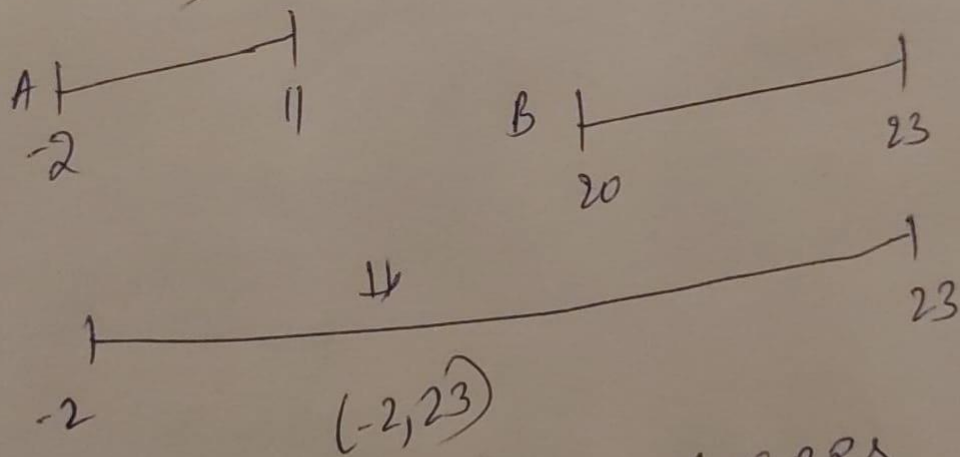 A
-2
11
B
20
23
-2
23
(-2,23)